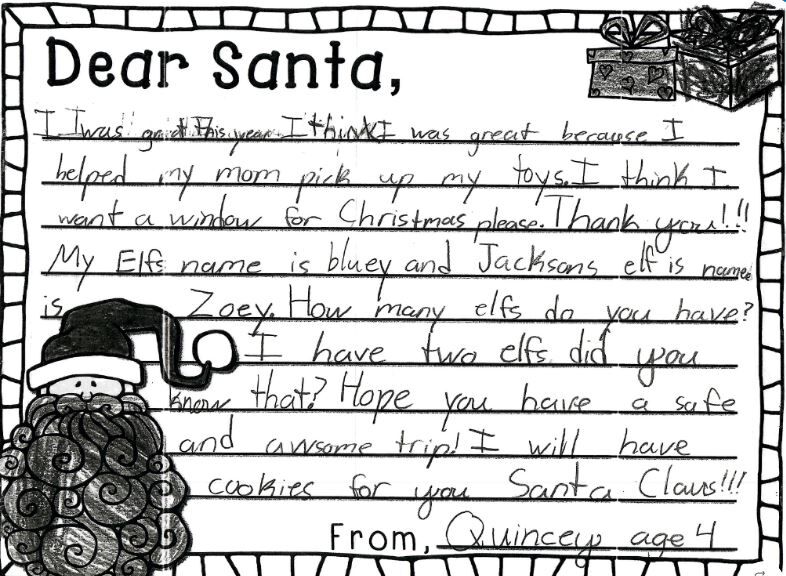 Dear Santa,
I I was great This year I think I was great because I
helped my mom pick up my toys. I think I
want a window for Christmas please. Thank you!!!
My Elfs name is bluey and Jacksons elf is name
is Zoey. How many elfs do you have?
I have two elfs did you
know that? Hope you have a safe
and awsome trip! I will have
cookies for you Santa Claus!!!
From, Quincey age 4